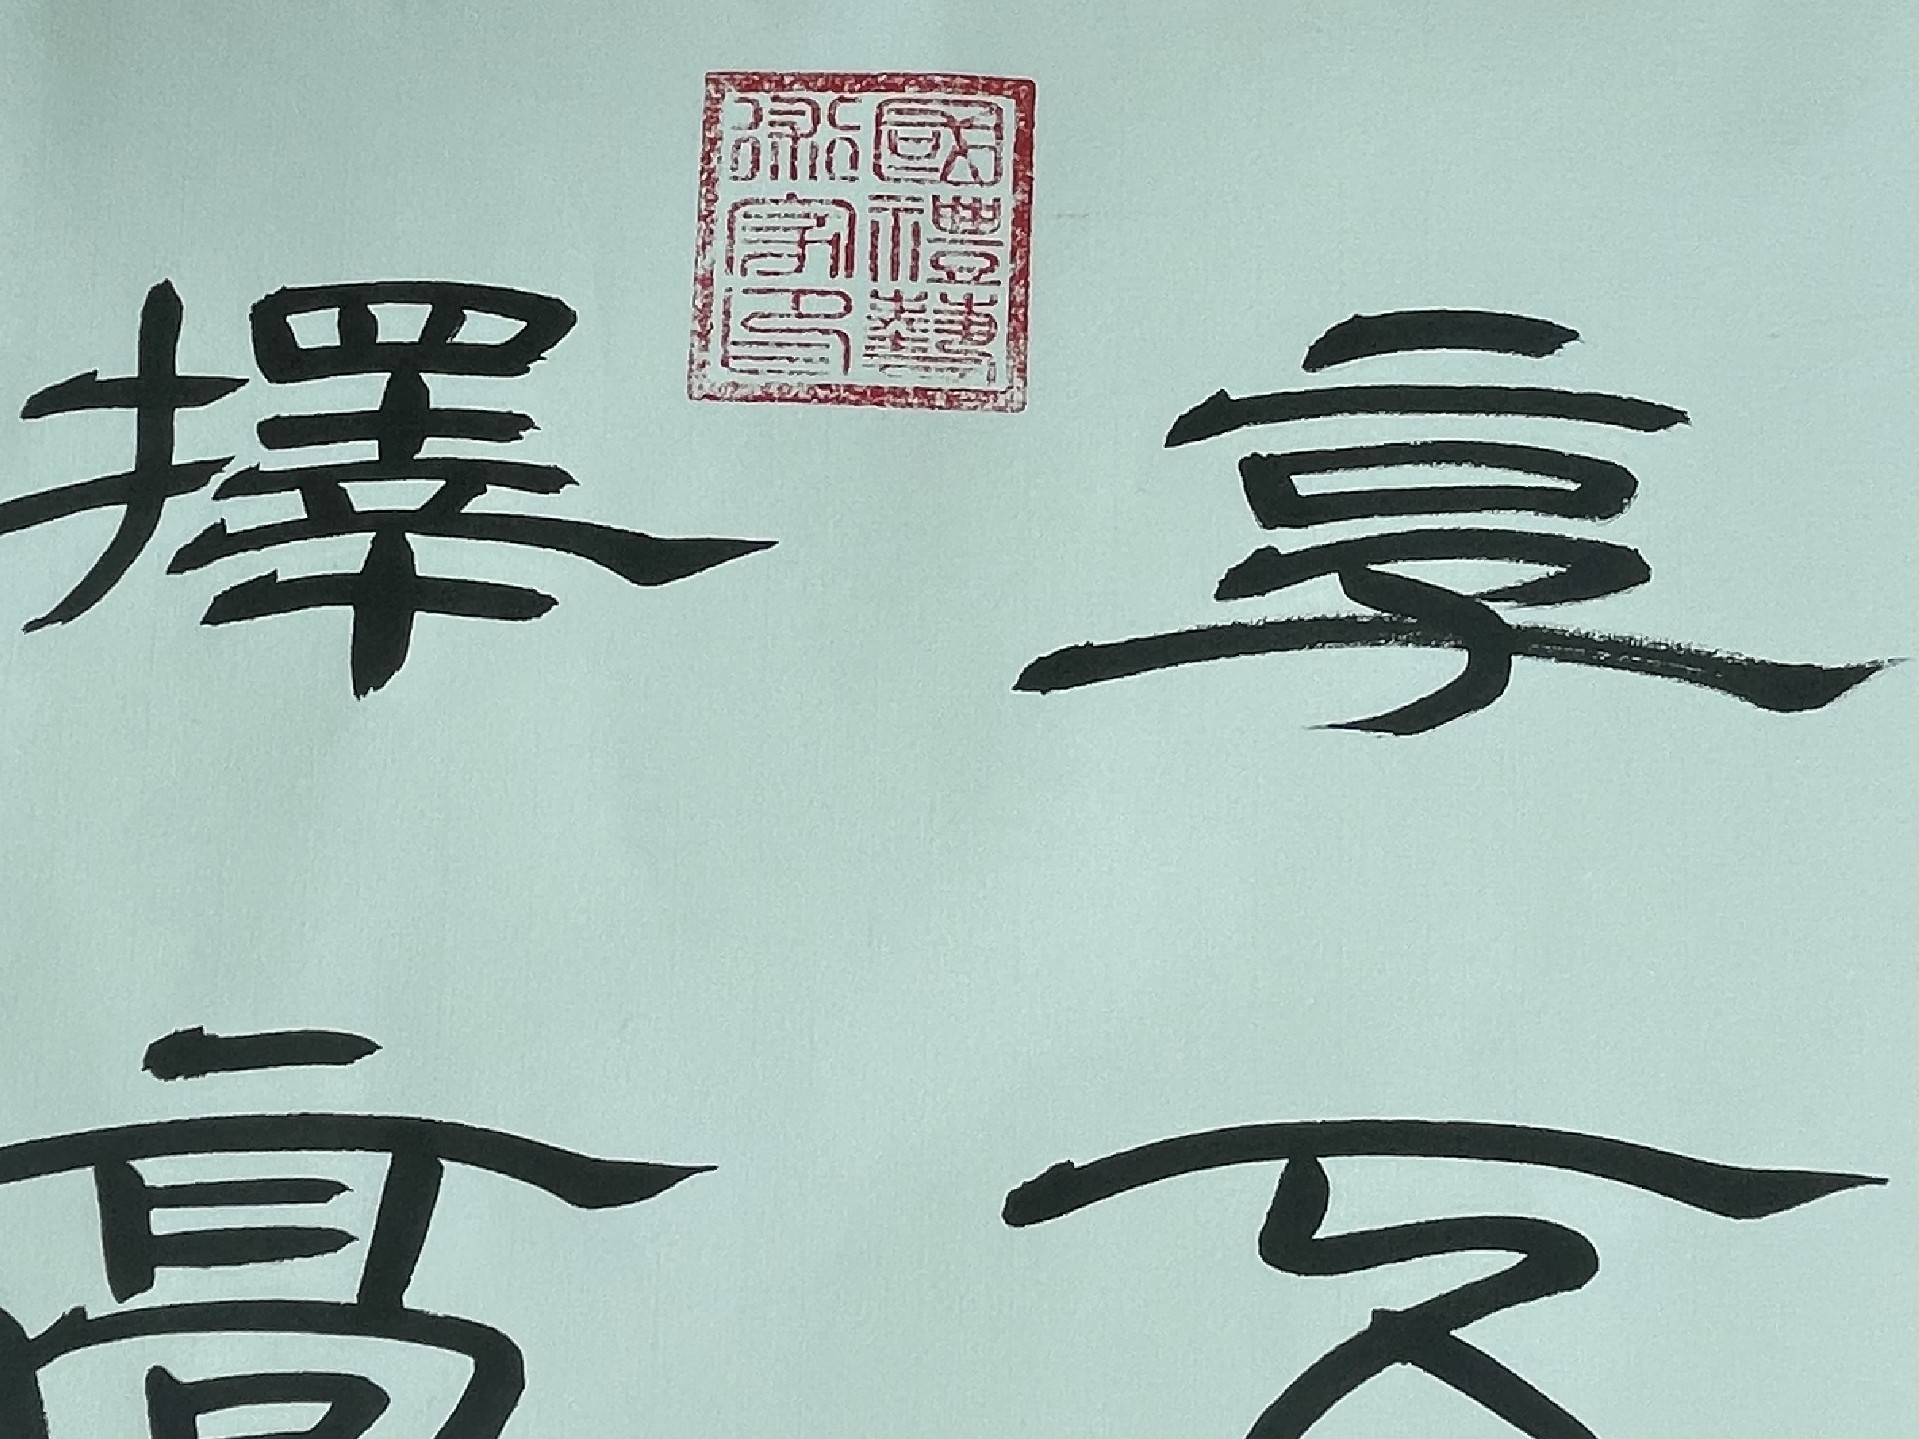 享
國禮藝
術家印
擇高